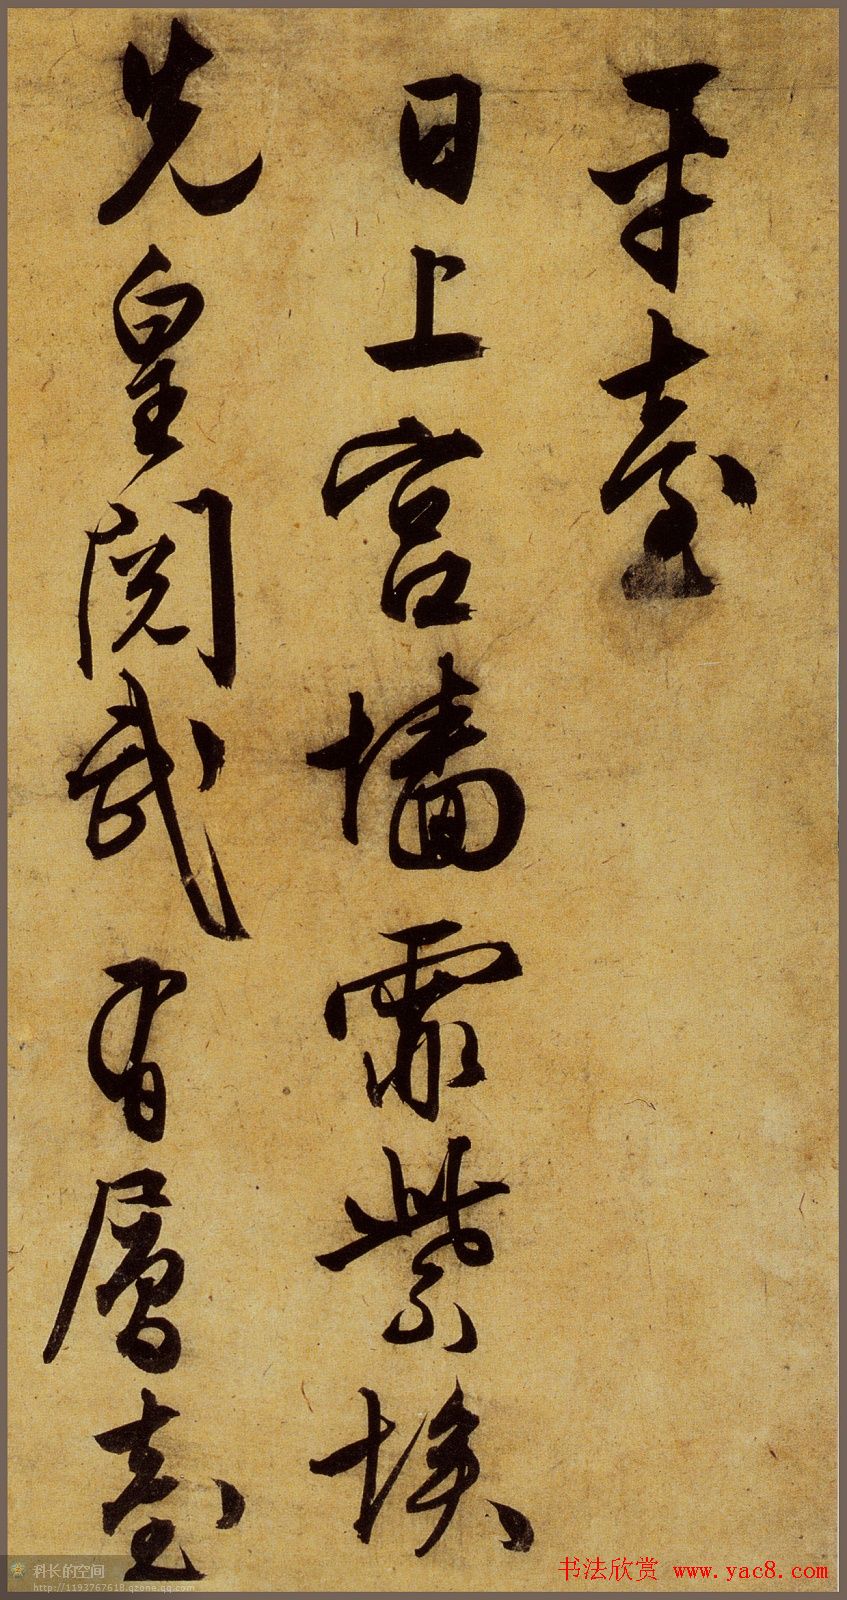 平臺
日上宫墙霏紫埃
先皇閱武有層臺
科长的空间
http://1193767618.qzone.qq.com
书法欣赏 www.yac8.com